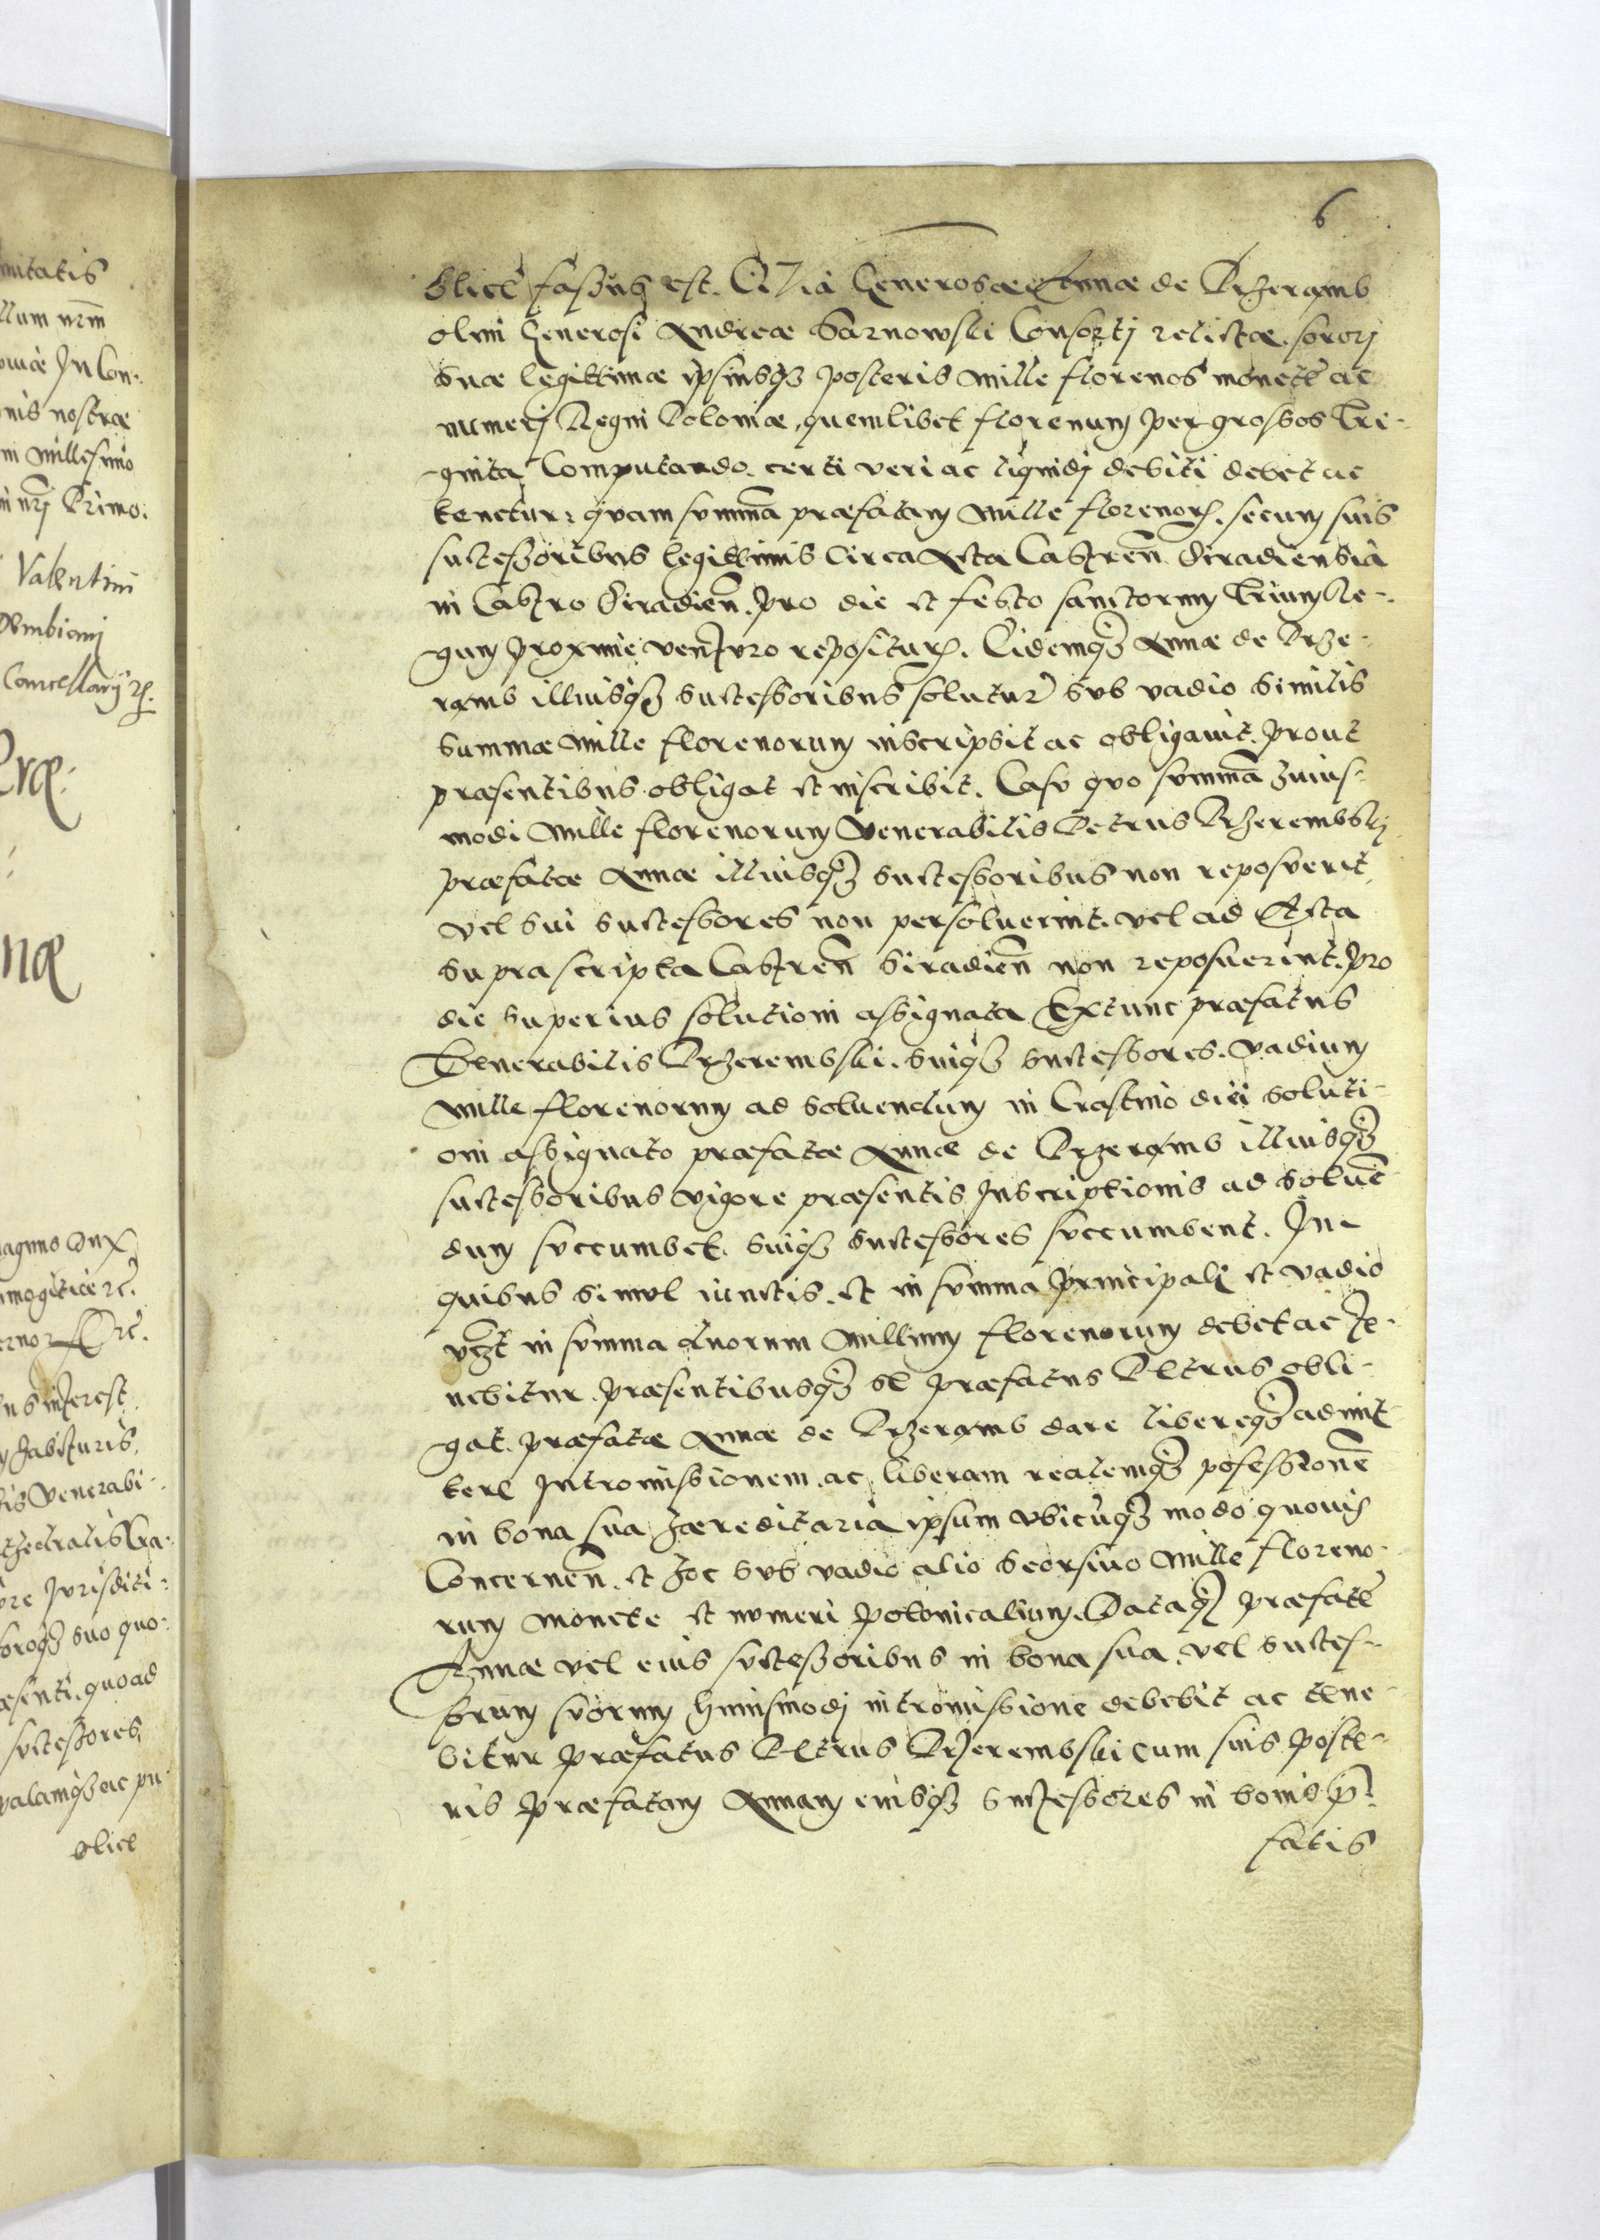 6
blice fassus est. Quia Generosæ Annæ de Przeramb
olim Generosi Andreæ Sarnowski Consorti relictæ. sorori
suæ legittimæ ipsiusq3 posteris mille florenos monete ac
numerj Regni Poloniæ, quemlibet florenum per grossos Tri-
ginta Computando. certi veri ac liquidj debiti debet ac
tenetur: quam summã præfatam mille florenor. secum suis
successoribus legittimis Circa Acta Castren. Siradiensia
in Castro Siradien. pro die et festo sanctorum Trium Re-
gum proxime venturo repositur. Eidemq3 Annæ de Prze-
ramb illiusq3 successoribus solutur sub vadio similis
summæ mille florenorum inscripsit ac obligavit. prout
præsentibus obligat et inscribit. Casu quo summã huius-
modi mille florenorum Venerabilis Petrus Przerembskj
præfatæ Annæ illiusq3 successoribus non reposuerit
vel sui successores non persoluerint. vel ad Acta
suprascripta Castren Siradien non reposuerint. pro
die superius solutioni assignata Extunc præfatus
Venerabilis Przerembski. suiq3 successores. vadium
mille florenorum ad soluendum in Crastino diei soluti-
oni assignato præfatæ Annæ de Przeramb illiusq3
successoribus vigore præsentis Inscriptionis ad soluẽ
dum succumbet. suiq3 successores succumbent. In
quibus simul iunctis. et in summa principali et vadio
vzt in summa duorum millium florenorum debet ac te-
nebitur præsentibusq3 se præfatus Petrus obli-
gat. præfatæ Annæ de Przeramb dare libereq3 admit-
tere Intromissionem. ac liberam realemq3 possessionẽ
in bona sua hæreditaria ipsum vbicuq3 modo quouis
Concernen. et hoc sub vadio alio seorsiuo mille floreno-
rum monete et numeri polonicalium. Dataq3 præfate
Annæ vel eius successoribus in bona sua. vel succes-
sorum suorum huiusmodj intromissione debebit ac tene-
bitur præfatus Petrus Przerembski cum suis poste-
ris præfatam Annam eiusq3 successores in bonis p̃-
fatis